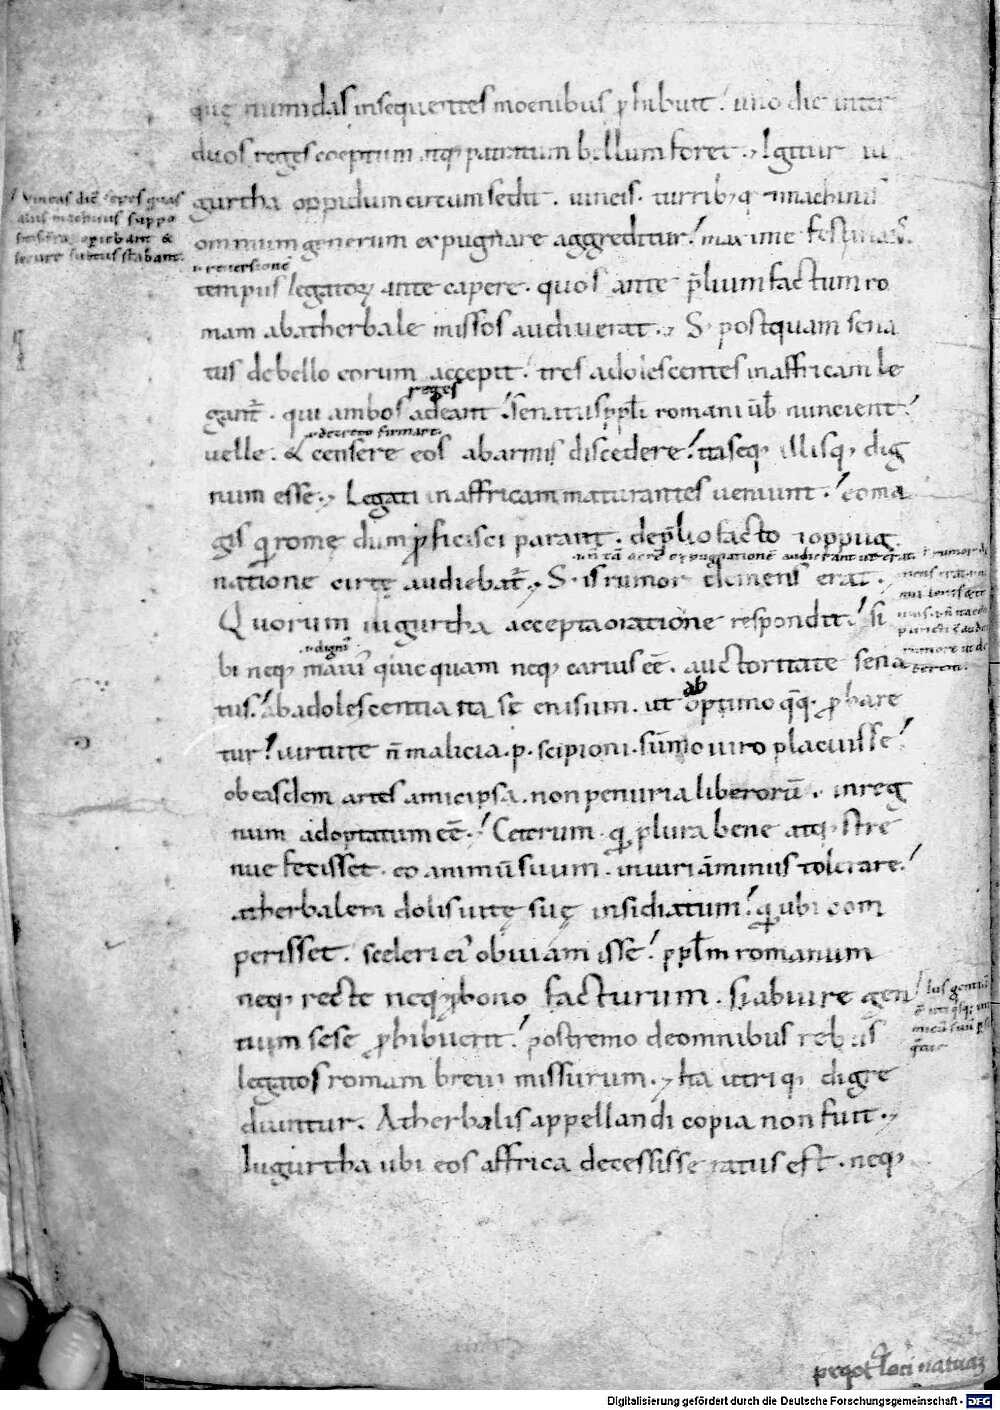 quę numidas insequentes moenibus ꝓhibuit! uno die inter
duos reges coeptum atq; patratum bellum foret., Igitur iu
gurtha oppidum circumsedit. uineis. turrib;q; & machinis
omnium generum expugnare aggreditur! maxime festinans.
reuersione
tempus legatorꝝ ante capere. quos ante p̄lium factum ro
mam abatherbale missos audiuerat., S; postquam sena
tus de bello eorum accepit. tres adolescentes in affricam le
reges
gant̄. qui ambos adeant! senatus pp̄li romani ūb nuncient!
decreto firmare
uelle. & censere eos abarmis discedere! ita seq; illisq; dig
num esse., Legati in affricam maturantes ueniunt.! eo ma
gis qđ romę dum ꝓficisci parant. de p̄lio facto & oppug
natione cirtę audiebat̄., S; is rumor clemens erat.,
Quorum iugurtha accepta oratione respondit! si
digni
bi neq; maius quicquam neq; carius eē. auctoritate sena
ab
tus! ab adolescentia ita se enisum. ut optimo q̄q; ꝓbare
tur! uirtute n̄ malicia. p. scipioni. sūmo uiro placuisse!
ob easdem artes amicipsa. non penuria liberorū. in reg
num adoptatum eē.! Ceterum qđ plura bene atq; stre
nue fecisset. eo animū suum. iniuriā minus tolerare!
atherbalem dolis uitę suę insidiatum! qđ ubi com
perisset. sceleri ei' obuiam isse! pp̄lm romanum
neq; recte neq; ꝓbono facturum. si abiure gen
tium sese ꝓhibuerit! postremo de omnibus rebus
legatos romam breui missurum., Ita utriq; digre
diuntur. Atherbalis appellandi copia non fuit.,
Iugurtha ubi eos affrica decessisse ratus est. neq;
Vineas dic̄ sepes quas
aliis machinis suppo
&
secure subtus stabant.
Ius gentiū
ē